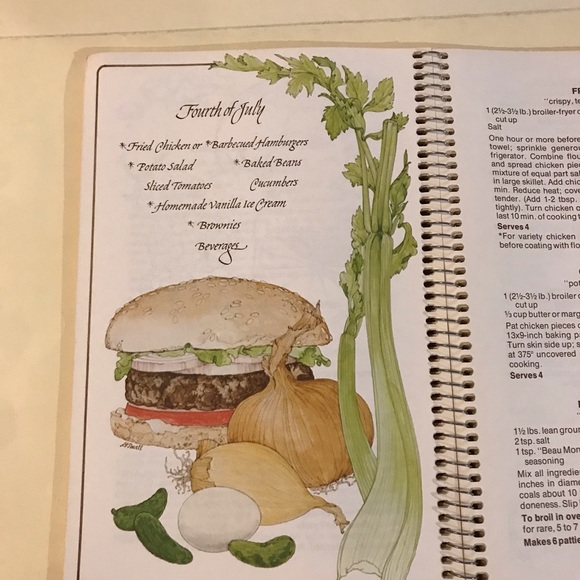 Fourth of July
*Fried Chicken or *Barbecued Hamburgers
*Potato Salad *Baked Beans
Sliced Tomatoes Cucumbers
*Homemade Vanilla Ice Cream
*Brownies
Beverages
"crispy, te
1 (2½-3½ lb.) broiler-fryer c
cut up
Salt
One hour or more before
towel; sprinkle genero
frigerator. Combine flou
and spread chicken pie
mixture of equal part sa
in large skillet. Add chic
min. Reduce heat; cove
tender. (Add 1-2 tbsp.
tightly). Turn chicken o
last 10 min. of cooking t
Serves 4
*For variety chicken
before coating with flo
"pot
1 (2½-3½ lb.) broiler c
cut up
⅓ cup butter or marg
Pat chicken pieces c
13x9-inch baking pa
Turn skin side up; s
at 375° uncovered
cooking.
Serves 4
1½ lbs. lean groun
2 tsp. salt
1 tsp. "Beau Mon
seasoning
Mix all ingredie
inches in diame
coals about 10
doneness. Slip
To broil in ove
for rare, 5 to 7
Makes 6 pattie